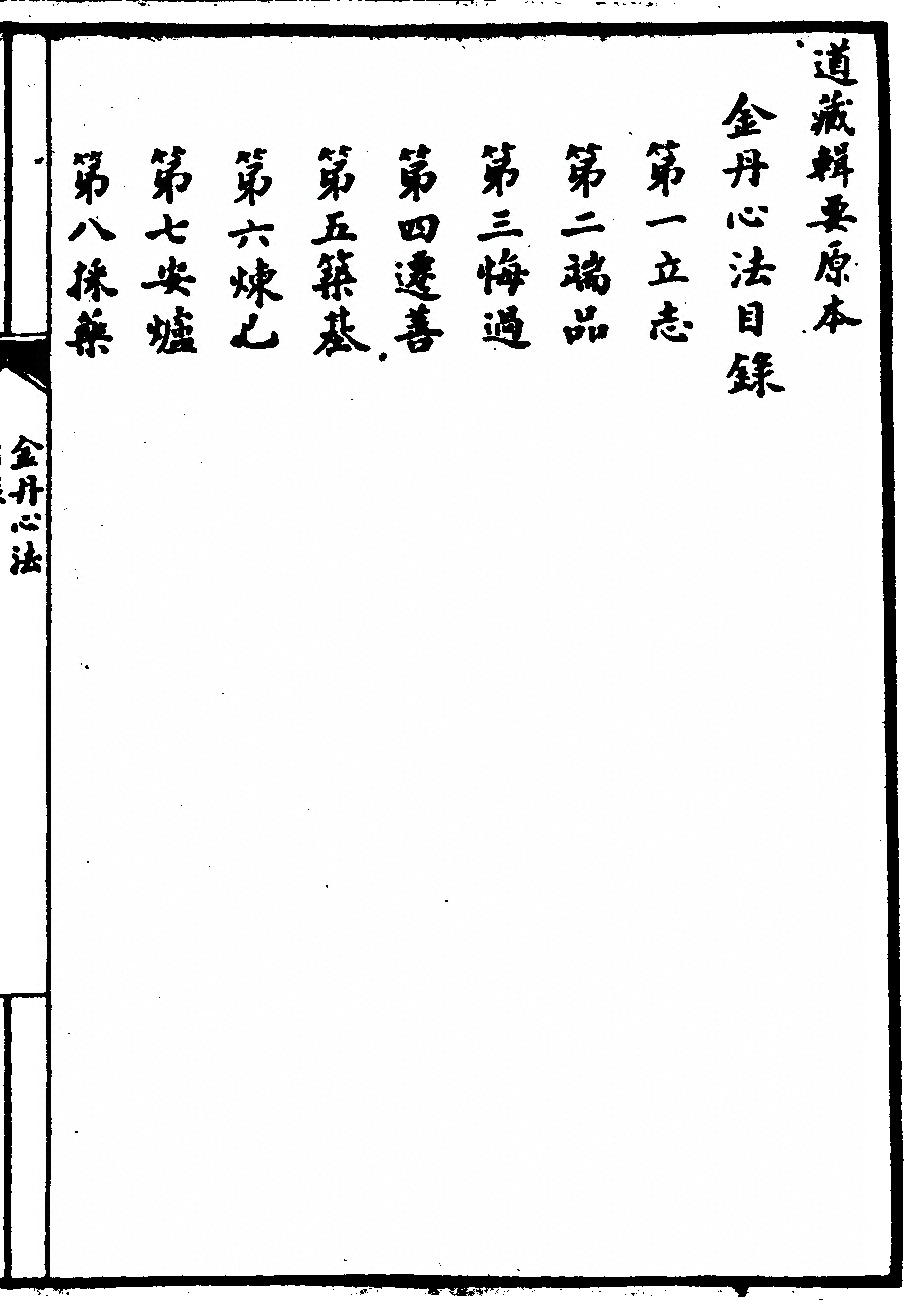 道藏輯要原本
金丹心法目錄
第一立志
第二端品
第三悔過
第四遷善
第五築基
第六煉己
第七安爐
第八採藥
金丹心法